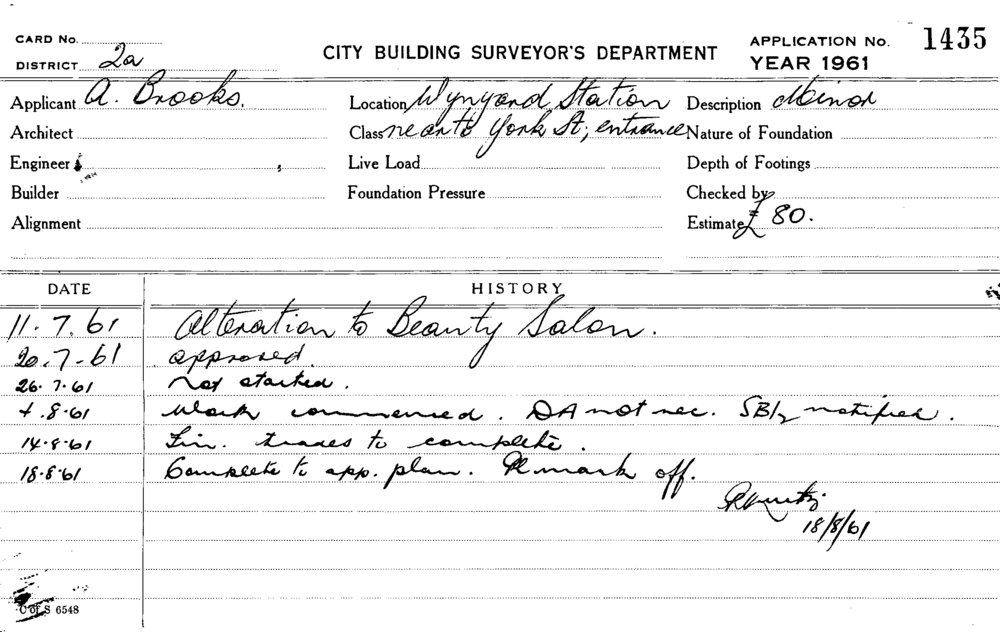 CARD No.
DISTRICT 2a
CITY BUILDING SURVEYOR'S DEPARTMENT
APPLICATION No. 1435
YEAR 1961
Applicant A. Brooks. Location Wynyard Station Description Minor
Architect Class near to York St, entrance Nature of Foundation
Engineer Live Load Depth of Footings
Builder Foundation Pressure Checked by
Alignment Estimate £ 80.
DATE HISTORY
11.7.61 Alteration to Beauty Salon.
20.7-61 approved.
26.7.61 Not started.
4.8.61 Work commenced. DA not nec. SB/2 notified.
14.8.61 Fin. trades to complete.
18.8.61 Complete to app. plan. mark off.
18/8/61
C of S 6548